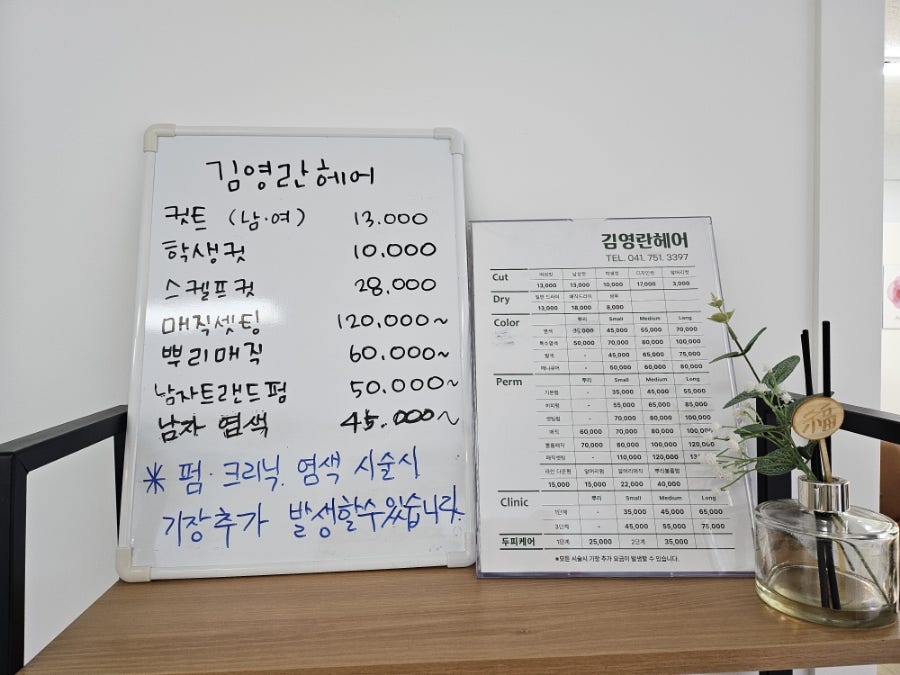 김영란헤어
컷트 (남·여) 13.000
학생컷 10.000
스켈프컷 28.000
매직셋팅 120.000~
뿌리매직 60.000~
남자트랜드펌 50.000~
남자 염색 45.000~
* 펌·크리닉. 염색 시술시
기장추가 발생할수있습니다.
김영란헤어
TEL. 041. 751. 3397
Cut 여성컷 남성컷 학생컷 디자인컷 앞머리컷
13,000 13,000 10,000 17,000 3,000
Dry 일반 드라이 매직드라이 샴푸
13,000 18,000 8,000
Color 뿌리 Small Medium Long
염색 35,000 45,000 55,000 70,000
특수염색 50,000 70,000 80,000 100,000
탈색 - 45,000 65,000 75,000
매니큐어 - 50,000 60,000 80,000
Perm 뿌리 Small Medium Long
기본펌 - 35,000 45,000 55,000
- 55,000 65,000 85,000
셋팅펌 - 70,000 80,000 100,000
매직 60,000 70,000 80,000 100,000
볼륨매직 70,000 80,000 100,000 120,000
매직셋팅 - 110,000 120,000
라인 다운펌 앞머리펌 앞머리매직 뿌리볼륨펌
15,000 15,000 22,000 40,000
Clinic 뿌리 Small Medium Long
1단계 - 35,000 45,000 65,000
3단계 - 45,000 55,000 75,000
두피케어 1단계 25,000 2단계 35,000
*모든 시술시 기장 추가 요금이 발생할 수 있습니다.